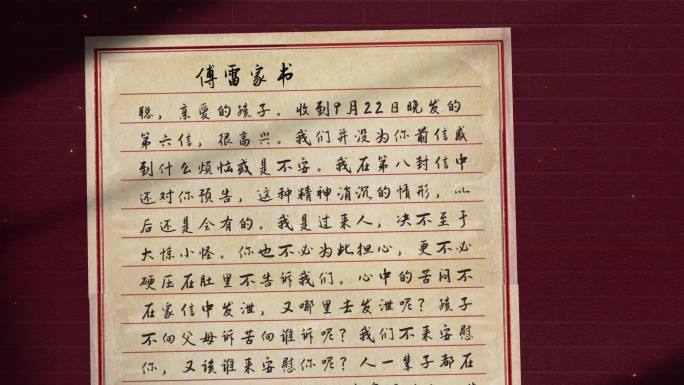 傅雷家书
聪，亲爱的孩子。收到9月22日晚发的
第六信，很高兴。我们并没为你前信感
到什么烦恼或是不安。我在第八封信中
还对你预告，这种精神消沉的情形，以
后还是会有的。我是过来人，决不至于
大惊小怪。你也不必为此担心，更不必
硬压在肚里不告诉我们。心中的苦闷不
在家信中发泄，又哪里去发泄呢？孩子
不向父母诉苦向谁诉呢？我们不来安慰
你，又该谁来安慰你呢？人一辈子都在